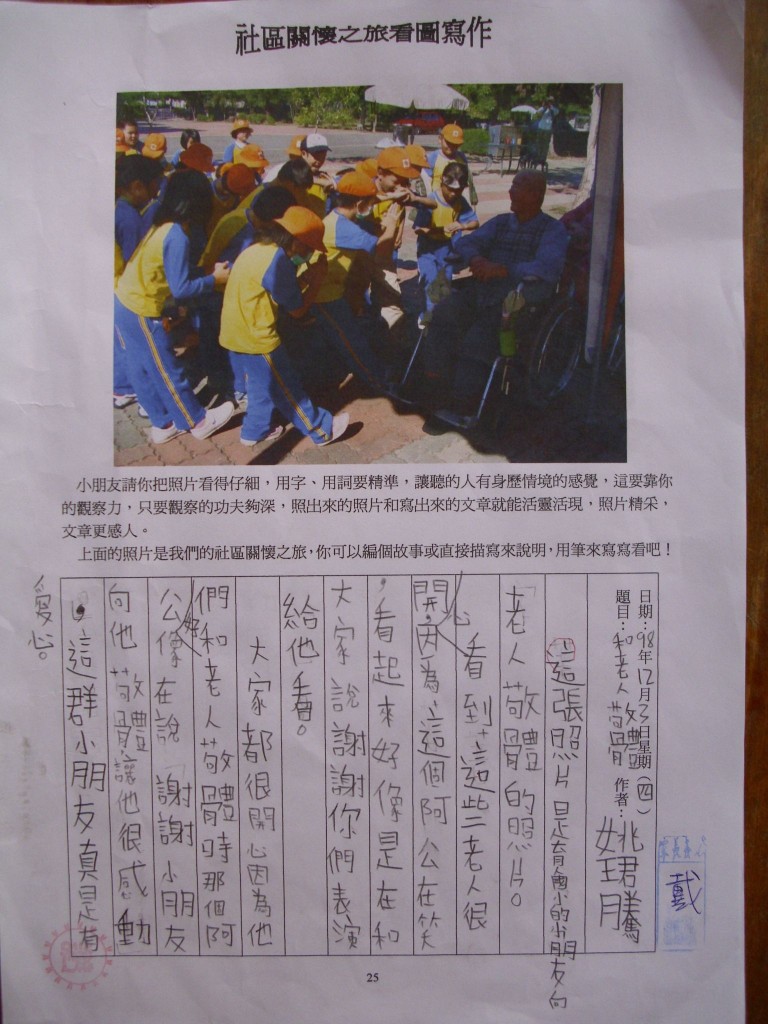 社區關懷之旅看圖寫作
小朋友請你把照片看得仔細，用字、用詞要精準，讓聽的人有身歷情境的感覺，這要靠你
的觀察力，只要觀察的功夫夠深，照出來的照片和寫出來的文章就能活靈活現，照片精采，
文章更感人。
上面的照片是我們的社區關懷之旅，你可以編個故事或直接描寫來說明，用筆來寫寫看吧！
日期：98年12月3日星期（四）
題目：和老人敬體 作者：姚珺騰
這張照片是育人國小的小朋友向
「老人敬體的照片。
看到這些老人很
開心，因為這個阿公在笑
，看起來好像是在和
大家說謝謝你們表演
給他看。
大家都很開心因為他
們和老人敬體時那個阿
公好像在說「謝謝小朋友
向他敬體讓他很感動
」，這群小朋友真是有
愛心。
戴
25